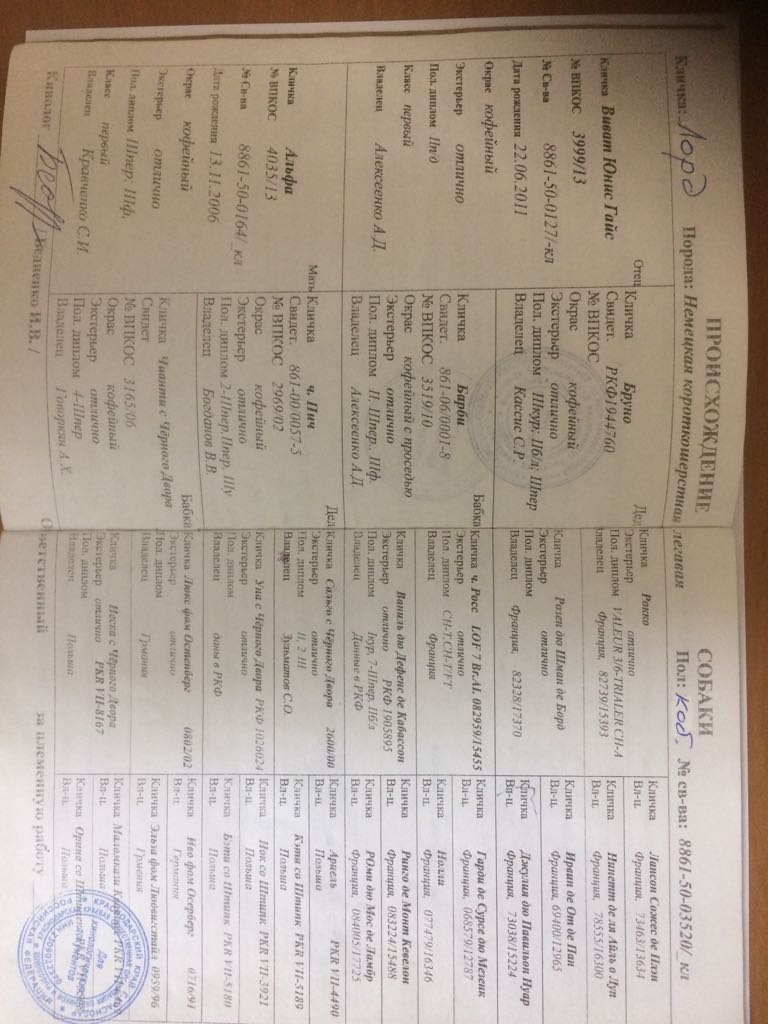 ПРОИСХОЖДЕНИЕ СОБАКИ
Кличка: Лорд Порода: Немецкая короткошерстная легавая Пол: коб. № св-ва: 8861-50-03520/_кл
Кличка Виват Юнис Гайс
№ ВПКОС 3999/13
№ Св-ва 8861-50-0127/-кл
Дата рождения 22.06.2011
Окрас кофейный
Экстерьер отлично
Пол. диплом IIп/д
Класс первый
Владелец Алексеенко А.Д.
Отец
Кличка Альфа
№ ВПКОС 4035/13
№ Св-ва 8861-50-0164/_кл
Дата рождения 13.11.2006
Окрас кофейный
Экстерьер отлично
Пол. диплом IIIпер; IIIф,
Класс первый
Владелец Кравченко С.И
Мать
Кинолог
Кличка Бруно
Свидет. РКФ1944760
№ ВПКОС
Окрас кофейный
Экстерьер отлично
Пол. диплом IIIкур; IIб/л; IIIпер
Владелец Кассис С.Р.
Дед
Кличка Барби
Свидет. 861-06/0001-8
№ ВПКОС 3519/10
Окрас кофейный с проседью
Экстерьер отлично
Пол. диплом II. IIпер., IIIф.
Владелец Алексеенко А.Д.
Бабка
Кличка ч. Пич
Свидет. 861-00/0057-5
№ ВПКОС 2969/02
Окрас кофейный
Экстерьер отлично
Пол. диплом 2-IIпер
Владелец Богданов В.В.
Дед
Кличка Чианти с Чёрного Двора
Свидет
№ ВПКОС 3165/06
Окрас кофейный
Экстерьер отлично
Пол. диплом 4-IIIпер
Владелец Говоркян А.Х.
Бабка
Кличка Рокко
Экстерьер отлично
Пол. диплом VALEUR 3/6-TRIALER CH-A
Владелец Франция, 82739/15393
Кличка Розен дю Шман де Борд
Экстерьер отлично
Пол. диплом
Владелец Франция, 82328/17370
Кличка ч. Росс LOF 7 Br.Al. 082959/15455
Экстерьер отлично
Пол. диплом
Владелец Франция
Кличка Ваниль дю Дефенс де Кабассон
Экстерьер отлично РКФ 1905895
Пол. диплом
Владелец Данные в РКФ
Кличка Сальго с Чёрного Двора 2600/00
Экстерьер отлично
Пол. диплом II, 2-III
Владелец Зульматов С.О.
Кличка Уна с Чёрного Двора РКФ 1026024
Экстерьер отлично
Пол. диплом
Владелец даны в РКФ
Кличка Люкс фом Остенберг 0802/02
Экстерьер отлично
Пол. диплом
Владелец Грмания
Кличка Несна с Чёрного Двора
Экстерьер отлично PKR VII-8167
Пол. диплом
Владелец Польша
Кличка Лансон Сожес де Плэн
Вл-ц. Франция, 73463/13634
Кличка Нинетт де ля Айль о Луп
Вл-ц. Франция, 78555/16300
Кличка Ирвин де От де Пан
Вл-ц. Франция, 69400/12965
Кличка Джулия дю Павильон Нуар
Вл-ц. Франция, 73038/15224
Кличка Гарди де Сурсе дю Мезенк
Вл-ц. Франция, 068579/12787
Кличка Нолли
Вл-ц. Франция, 077479/16346
Кличка Ринго де Монт Кевелон
Вл-ц. Франция, 083224/15488
Кличка РОми дю Мос де Ламбр
Вл-ц. Франция, 084005/17725
Кличка Ариель PKR VII-4490
Вл-ц. Польша
Кличка Кэти со Штипк PKR VII-5189
Вл-ц. Польша
Кличка Нок со Штипк PKR VII-3921
Вл-ц. Польша
Кличка Бэти со Штипк PKR VII-5180
Вл-ц. Польша
Кличка Иво фом Осерберг 0716/91
Вл-ц. Германия
Кличка Эльза фом 0959/96
Вл-ц. Грмения
Кличка
Вл-ц. Польша
Кличка Орина со
Вл-ц. Польша
Ответственный за племенную работу
Для